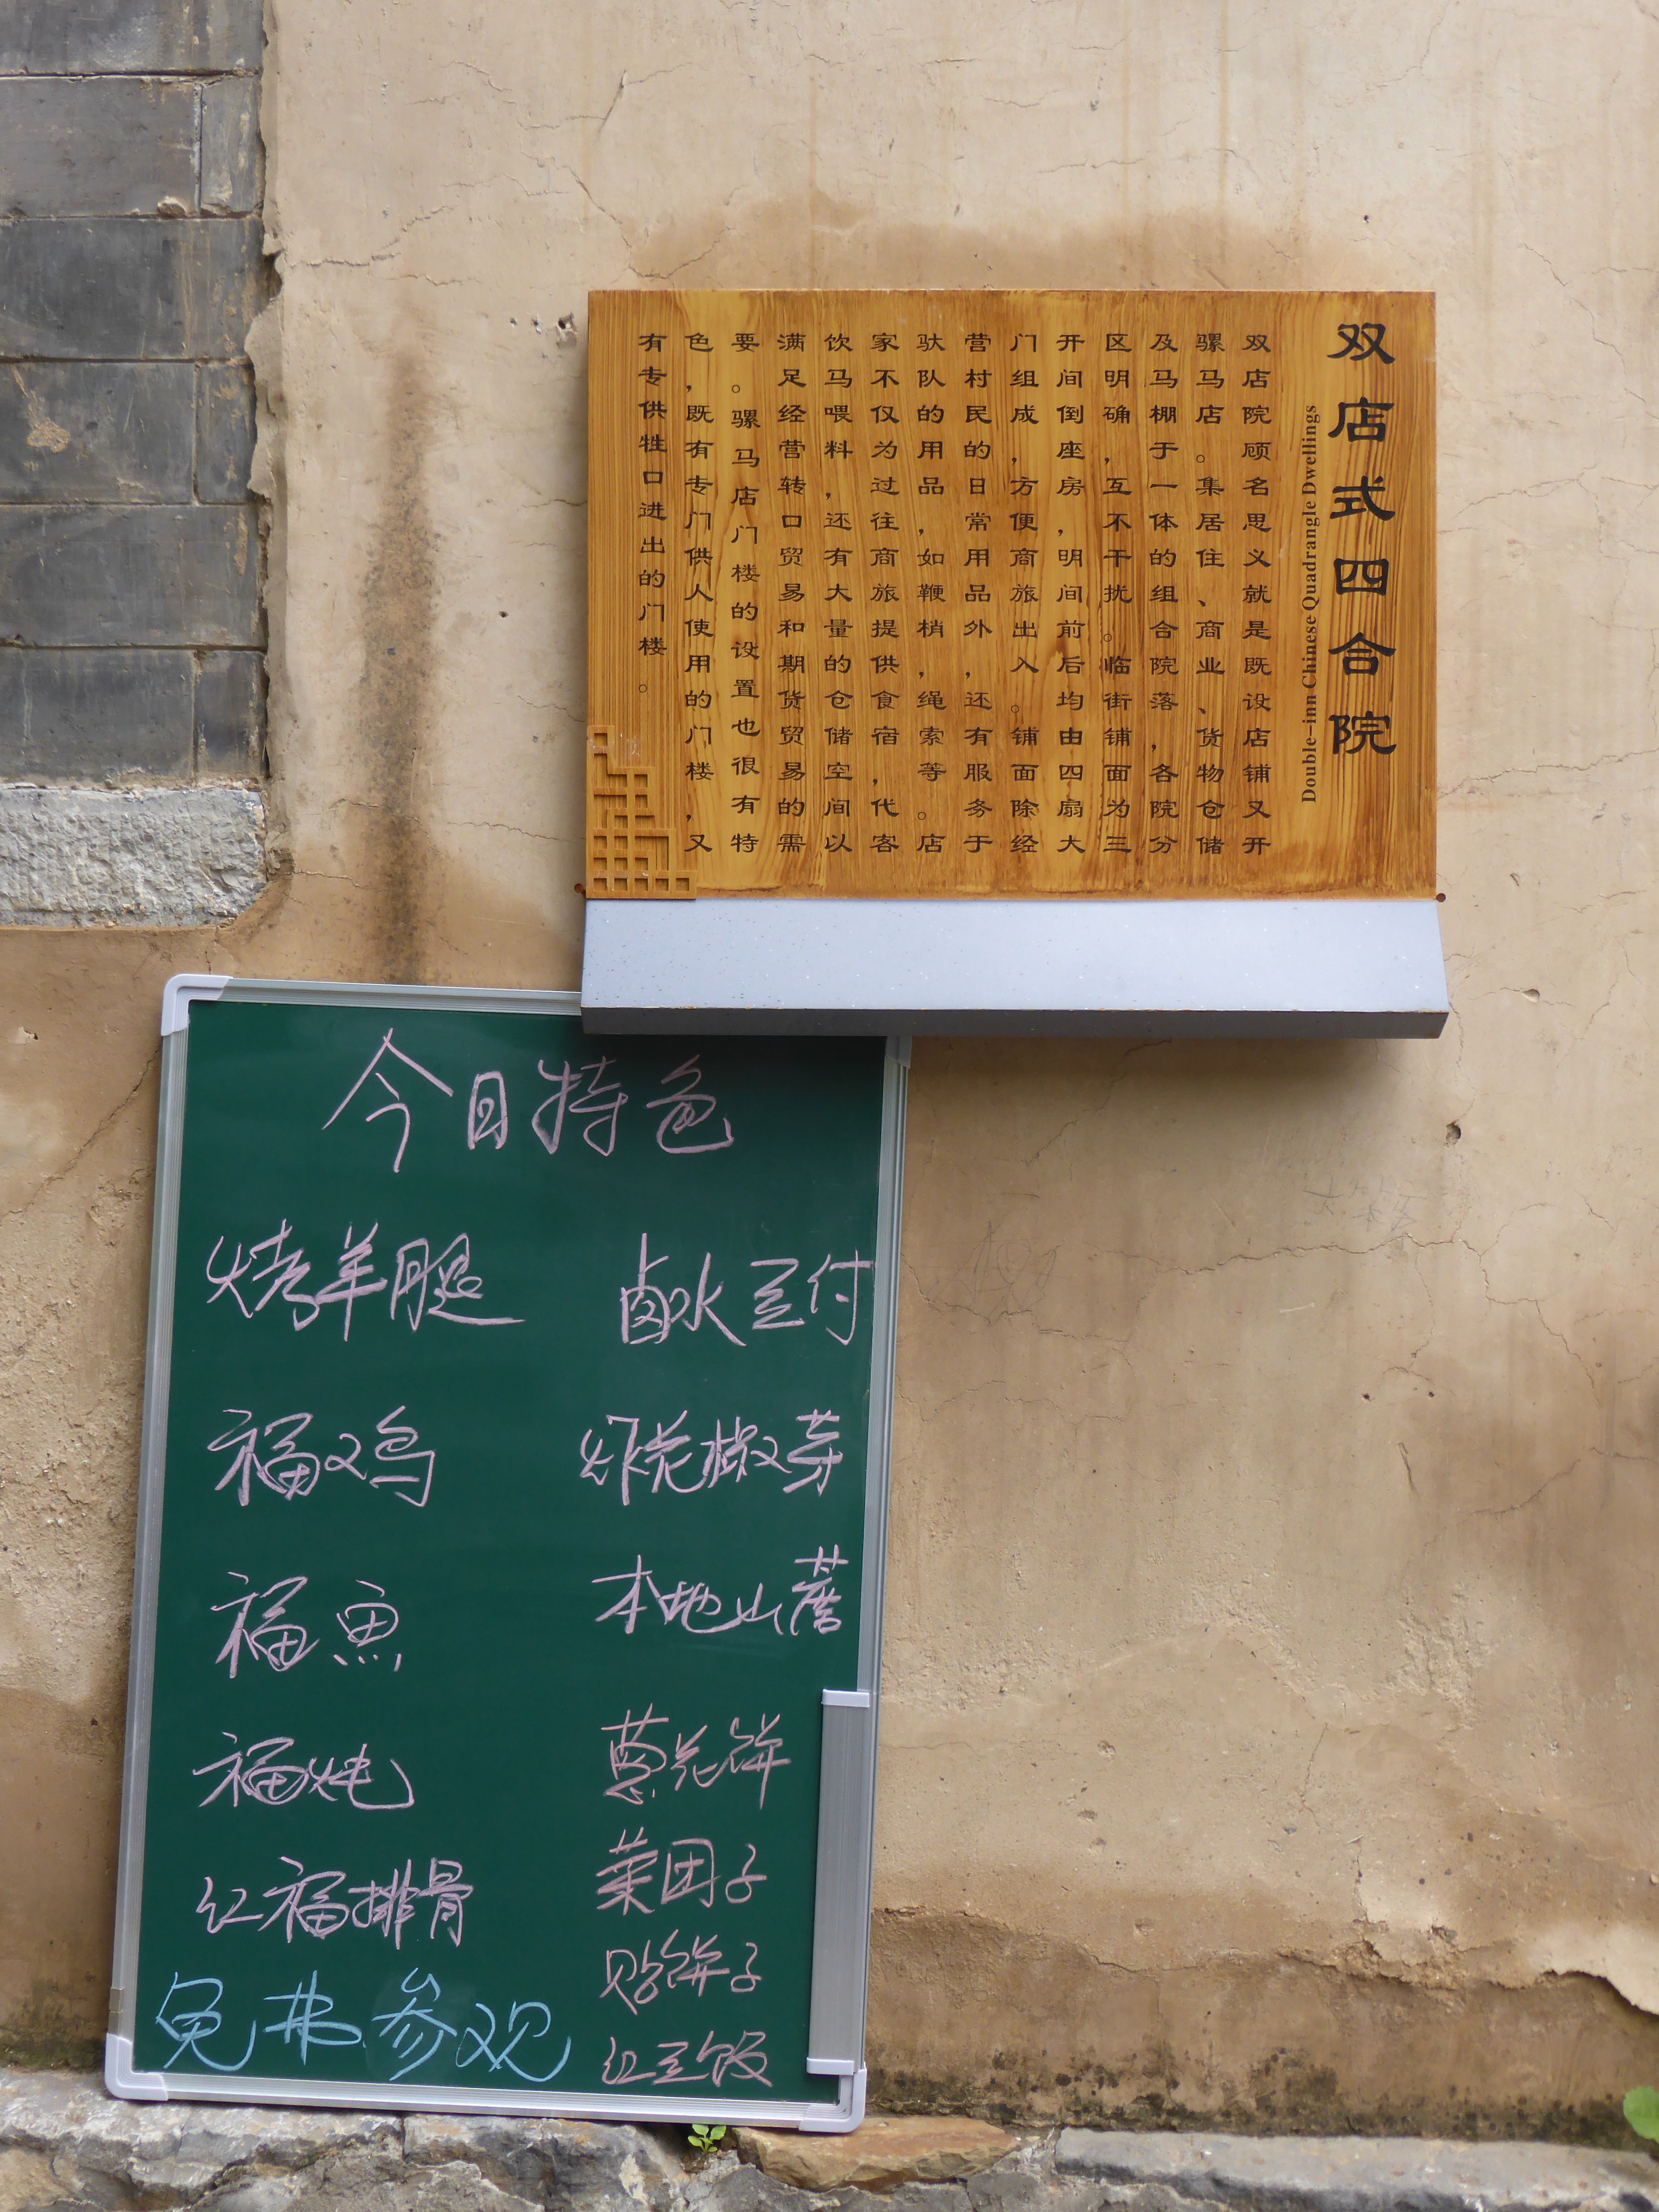 双店式四合院
Double-inn Chinese Quadrangle Dwellings
双店院顾名思义就是既设店铺又开
骡马店。集居住、商业、货物仓储
及马棚于一体的组合院落，各院分
区明确，互不干扰。临街铺面为三
开间倒座房，明间前后均由四扇大
门组成，方便商旅出入。铺面除经
营村民的日常用品外，还有服务于
驮队的用品，如鞭梢，绳索等。店
家不仅为过往商旅提供食宿，代客
饮马喂料，还有大量的仓储空间以
满足经营转口贸易和期货贸易的需
要。骡马店门楼的设置也很有特
色，既有专门供人使用的门楼，又
有专供牲口进出的门楼。
今日特色
烤羊腿
福鸡
福鱼
福炖
红福排骨
免费参观
卤水豆付
炸花椒芽
本地山蘑
葱花饼
菜团子
贴饼子
红豆饭